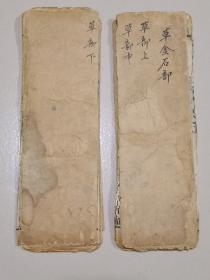 草金石部
草部上
草部中
草部下